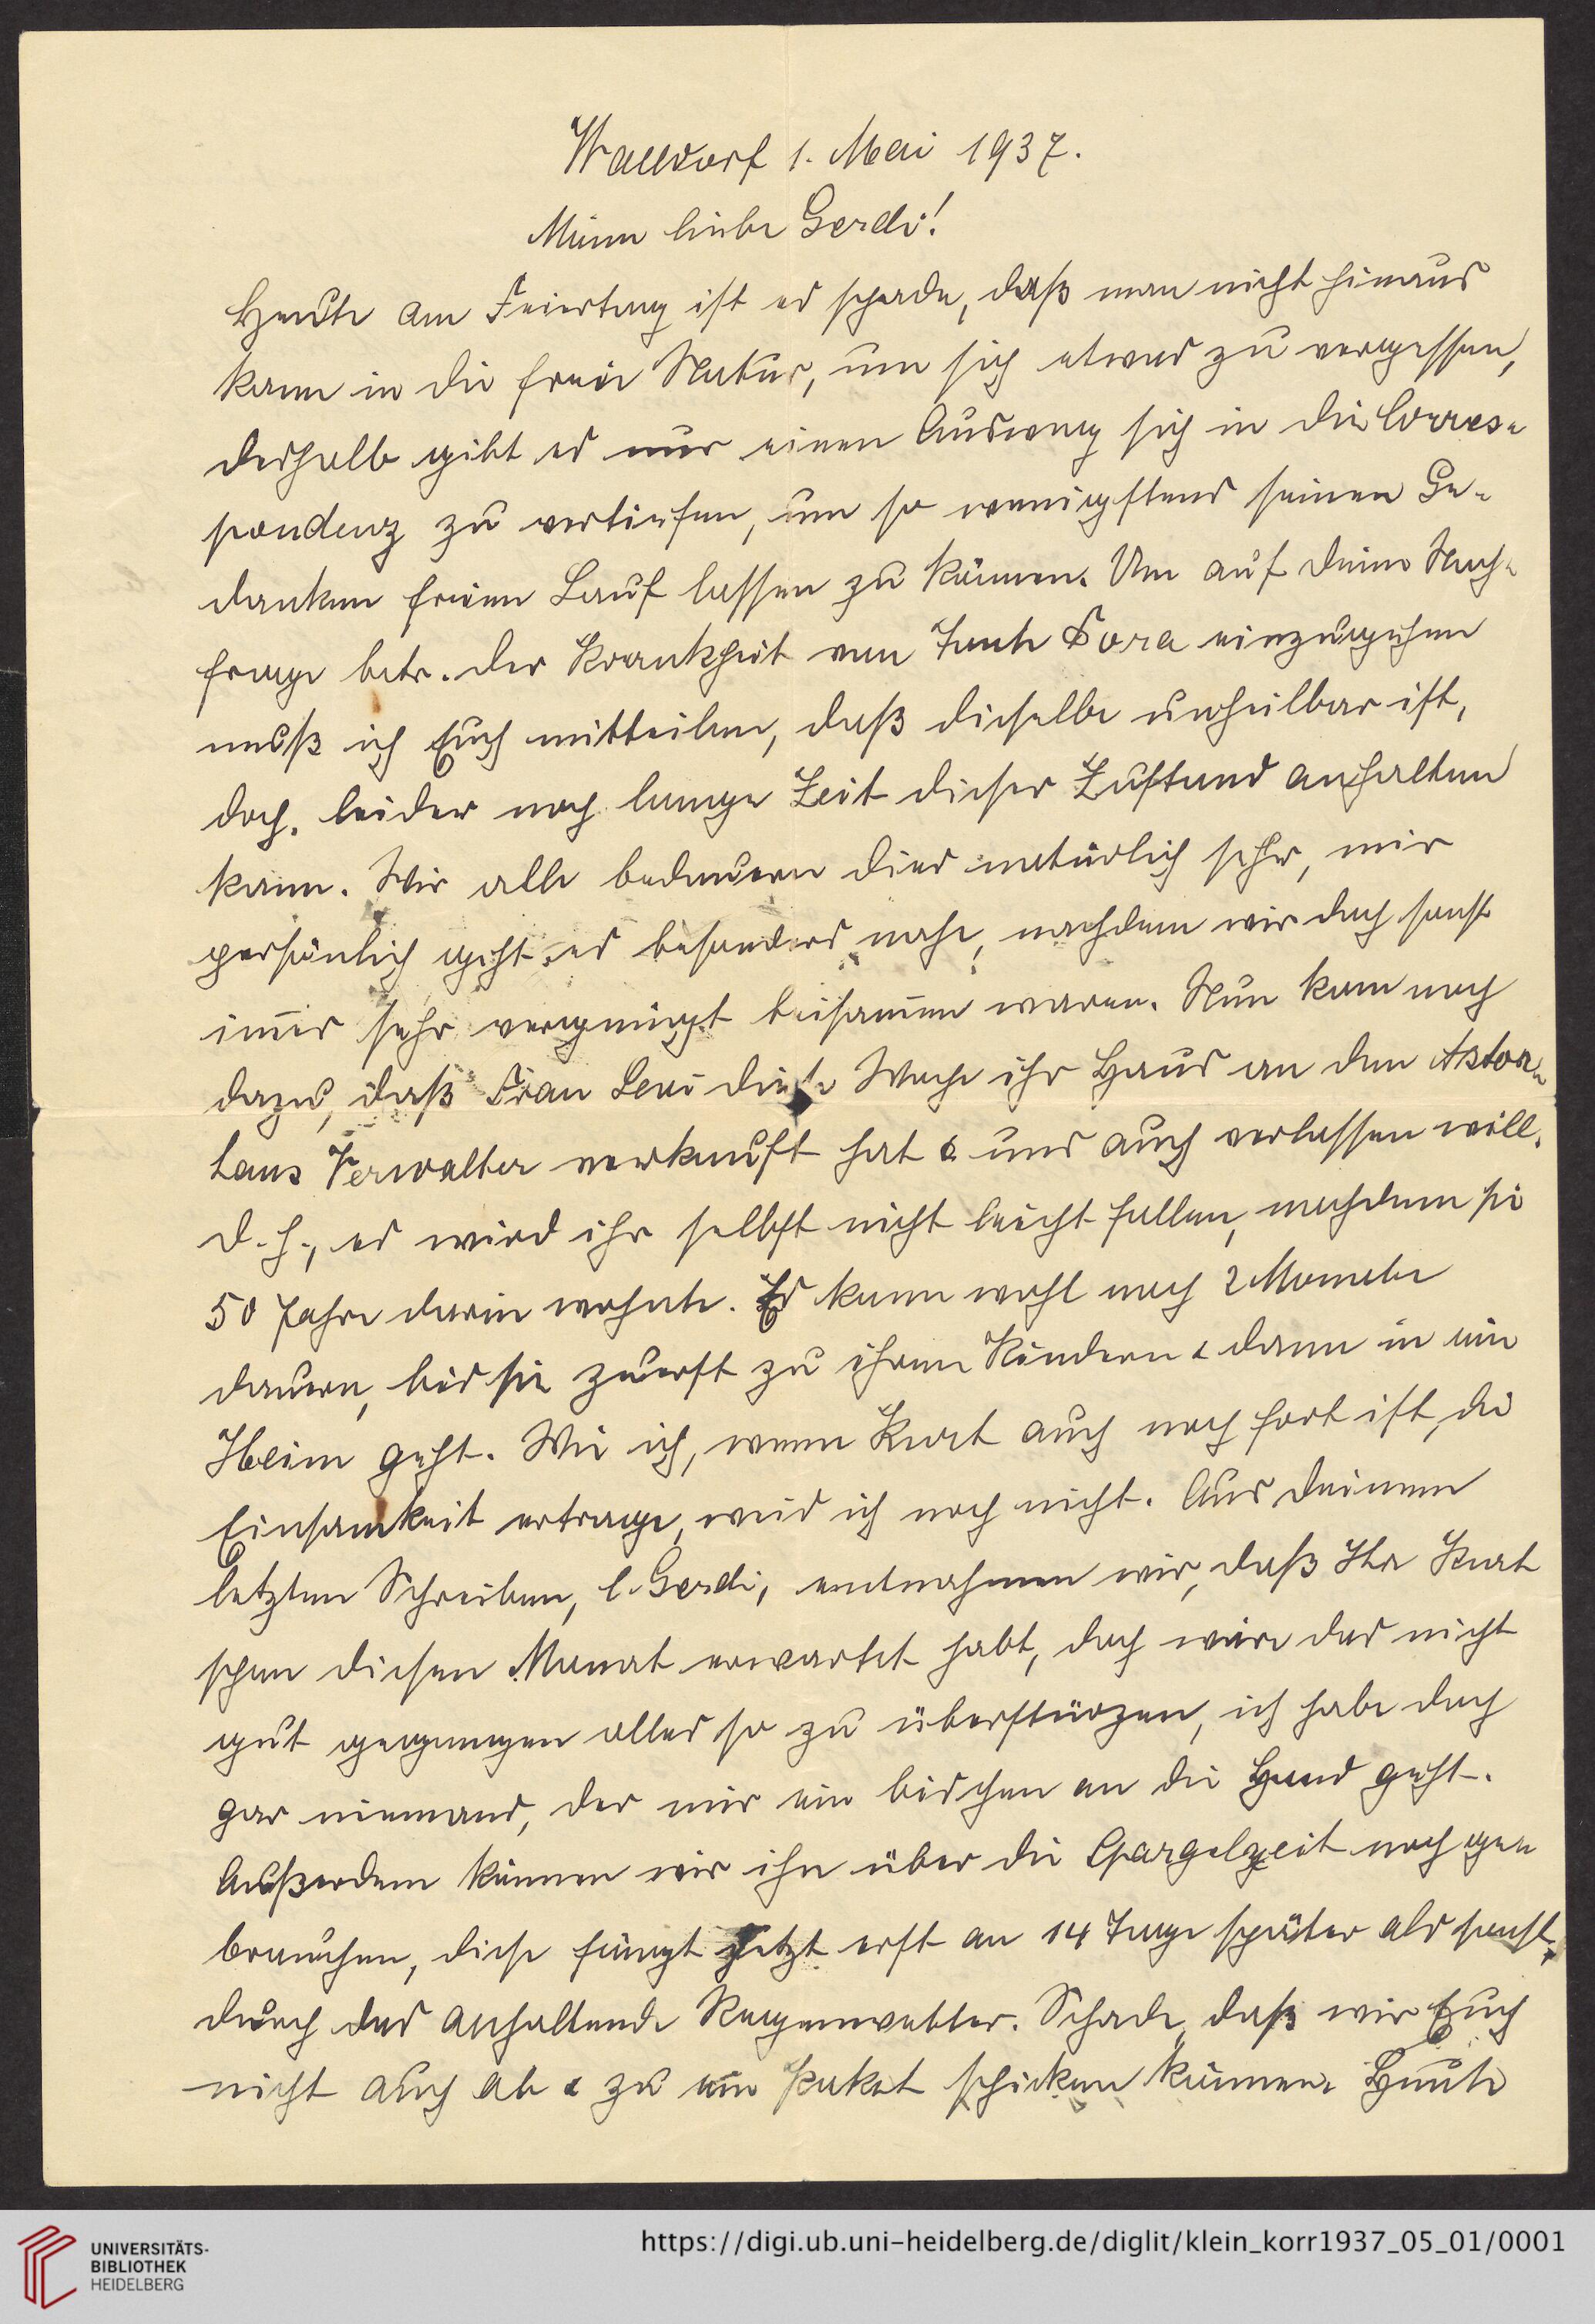 Walldorf 1. Mai 1937.
Meine liebe Gerdi!
Heute am Feiertag ist es schade, daß man nicht hinaus
kann in die freie Natur, um sich etwas zu vergessen,
deshalb gibt es nur einen Ausweg sich in die Corres-
pondenz zu vertiefen, um so wenigstens seinen Ge-
danken freien Lauf lassen zu können. Um auf deine Nach-
frage betr. der Krankheit von Tante Dora einzugehen
muß ich Euch mitteilen, daß dieselbe unheilbar ist,
doch leider noch lange Zeit dieser Zustand anhalten
kann. Wir alle bedauern dies natürlich sehr, mir
persönlich geht es besonders nahe, nachdem wir doch sonst
im̄er sehr vergnügt beisam̄en waren. Nun kam noch
dazu, daß Frau Levi diese Woche ihr Haus an den Astor-
haus Verwalter verkauft hat & uns auch verlassen will.
d. h., es wird ihr selbst nicht leicht fallen, nachdem sie
50 Jahre darin wohnte. Es kann wohl noch 2 Monate
dauern, bis sie zuerst zu ihren Kindern & dann in ein
Heim geht. Wie ich, wenn Kurt auch noch fort ist, die
Einsamkeit ertrage, weis ich noch nicht. Aus deinem
letzten Schreiben, l. Gerdi, entnahmen wir, daß Ihr Kurt
schon diesen Monat erwartet habt, doch wäre das nicht
gut gegangen alles so zu überstürzen, ich habe doch
gar niemand, der mir ein bischen an die Hand geht.
Außerdem können wir ihn über die Spargelzeit noch ge-
brauchen, diese fängt jetzt erst an 14 Tage später als sonst,
durch das anhaltende Regenwetter. Schade, daß wir Euch
nicht auch ab & zu ein Paket schicken können. Heute
UNIVERSITÄTS-
BIBLIOTHEK
HEIDELBERG
https://digi.ub.uni-heidelberg.de/diglit/klein_korr1937_05_01/0001